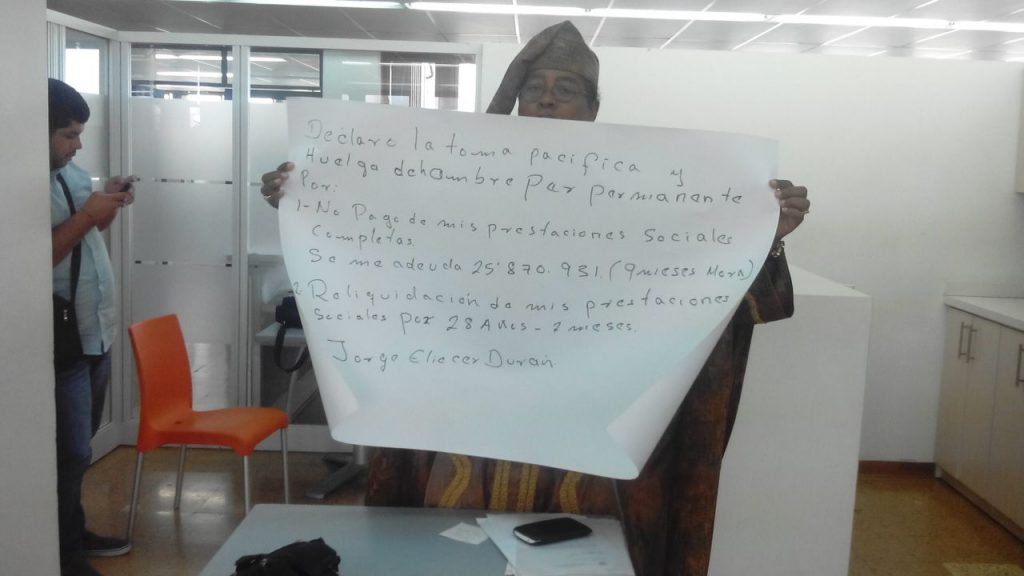 Declaro la toma pacifica y
Huelga de hambre per permanente
Por:
1- No Pago de mis prestaciones sociales
Completas.
Se me adeuda 25'870.931. (9 mieses Mora)
2. Reliquidación de mis prestaciones
Sociales por 28 Años - 2 meses.
Jorge Eliecer Durán